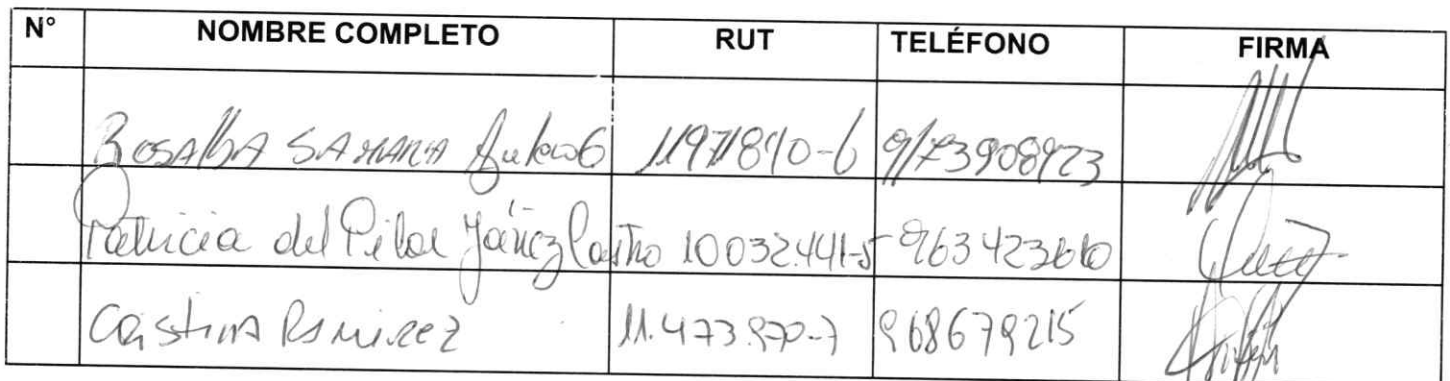 N° NOMBRE COMPLETO RUT TELÉFONO FIRMA
ROSALBA 11971810-6 9/73908923
Patricia del Pilar Yáñez Castro 10032.441-5 963423660
Cristina Ramirez 11.473.970-7 968679215